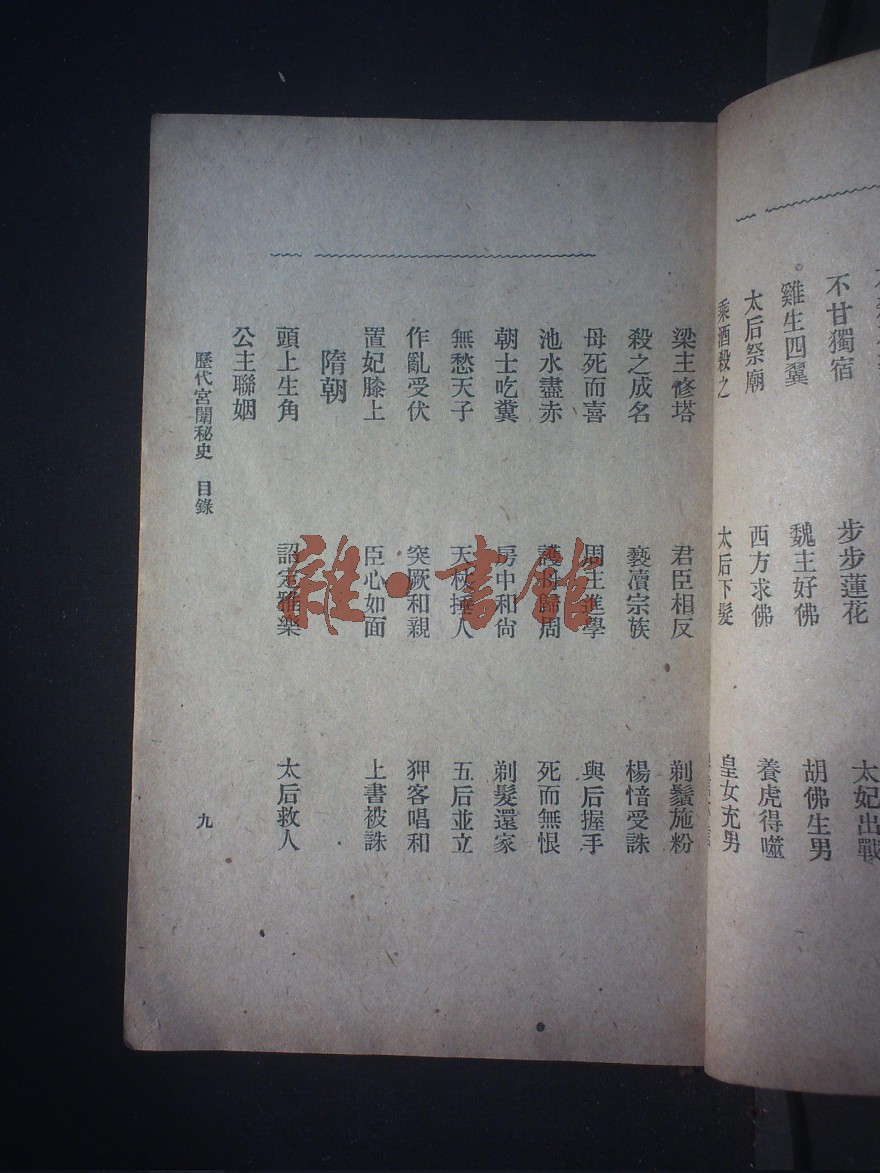 不甘獨宿 步步蓮花 太妃出戰
雞生四翼 魏主好佛 胡佛生男
太后祭廟 西方求佛 養虎得噬
乘酒殺之 太后下髮 皇女充男
梁主修塔 君臣相反 剃鬚施粉
殺之成名 褻瀆宗族 楊愔受誅
母死而喜 周主進學 與后握手
池水盡赤 護母歸周 死而無恨
朝士吃糞 房中和尙 剃髮還家
無愁天子 天杖捶人 五后並立
作亂受伏 突厥和親 狎客唱和
置妃膝上 臣心如面 上書被誅
隋朝
頭上生角 詔定雅樂 太后救人
公主聯姻
歷代宮闈秘史 目錄 九
雜·書館